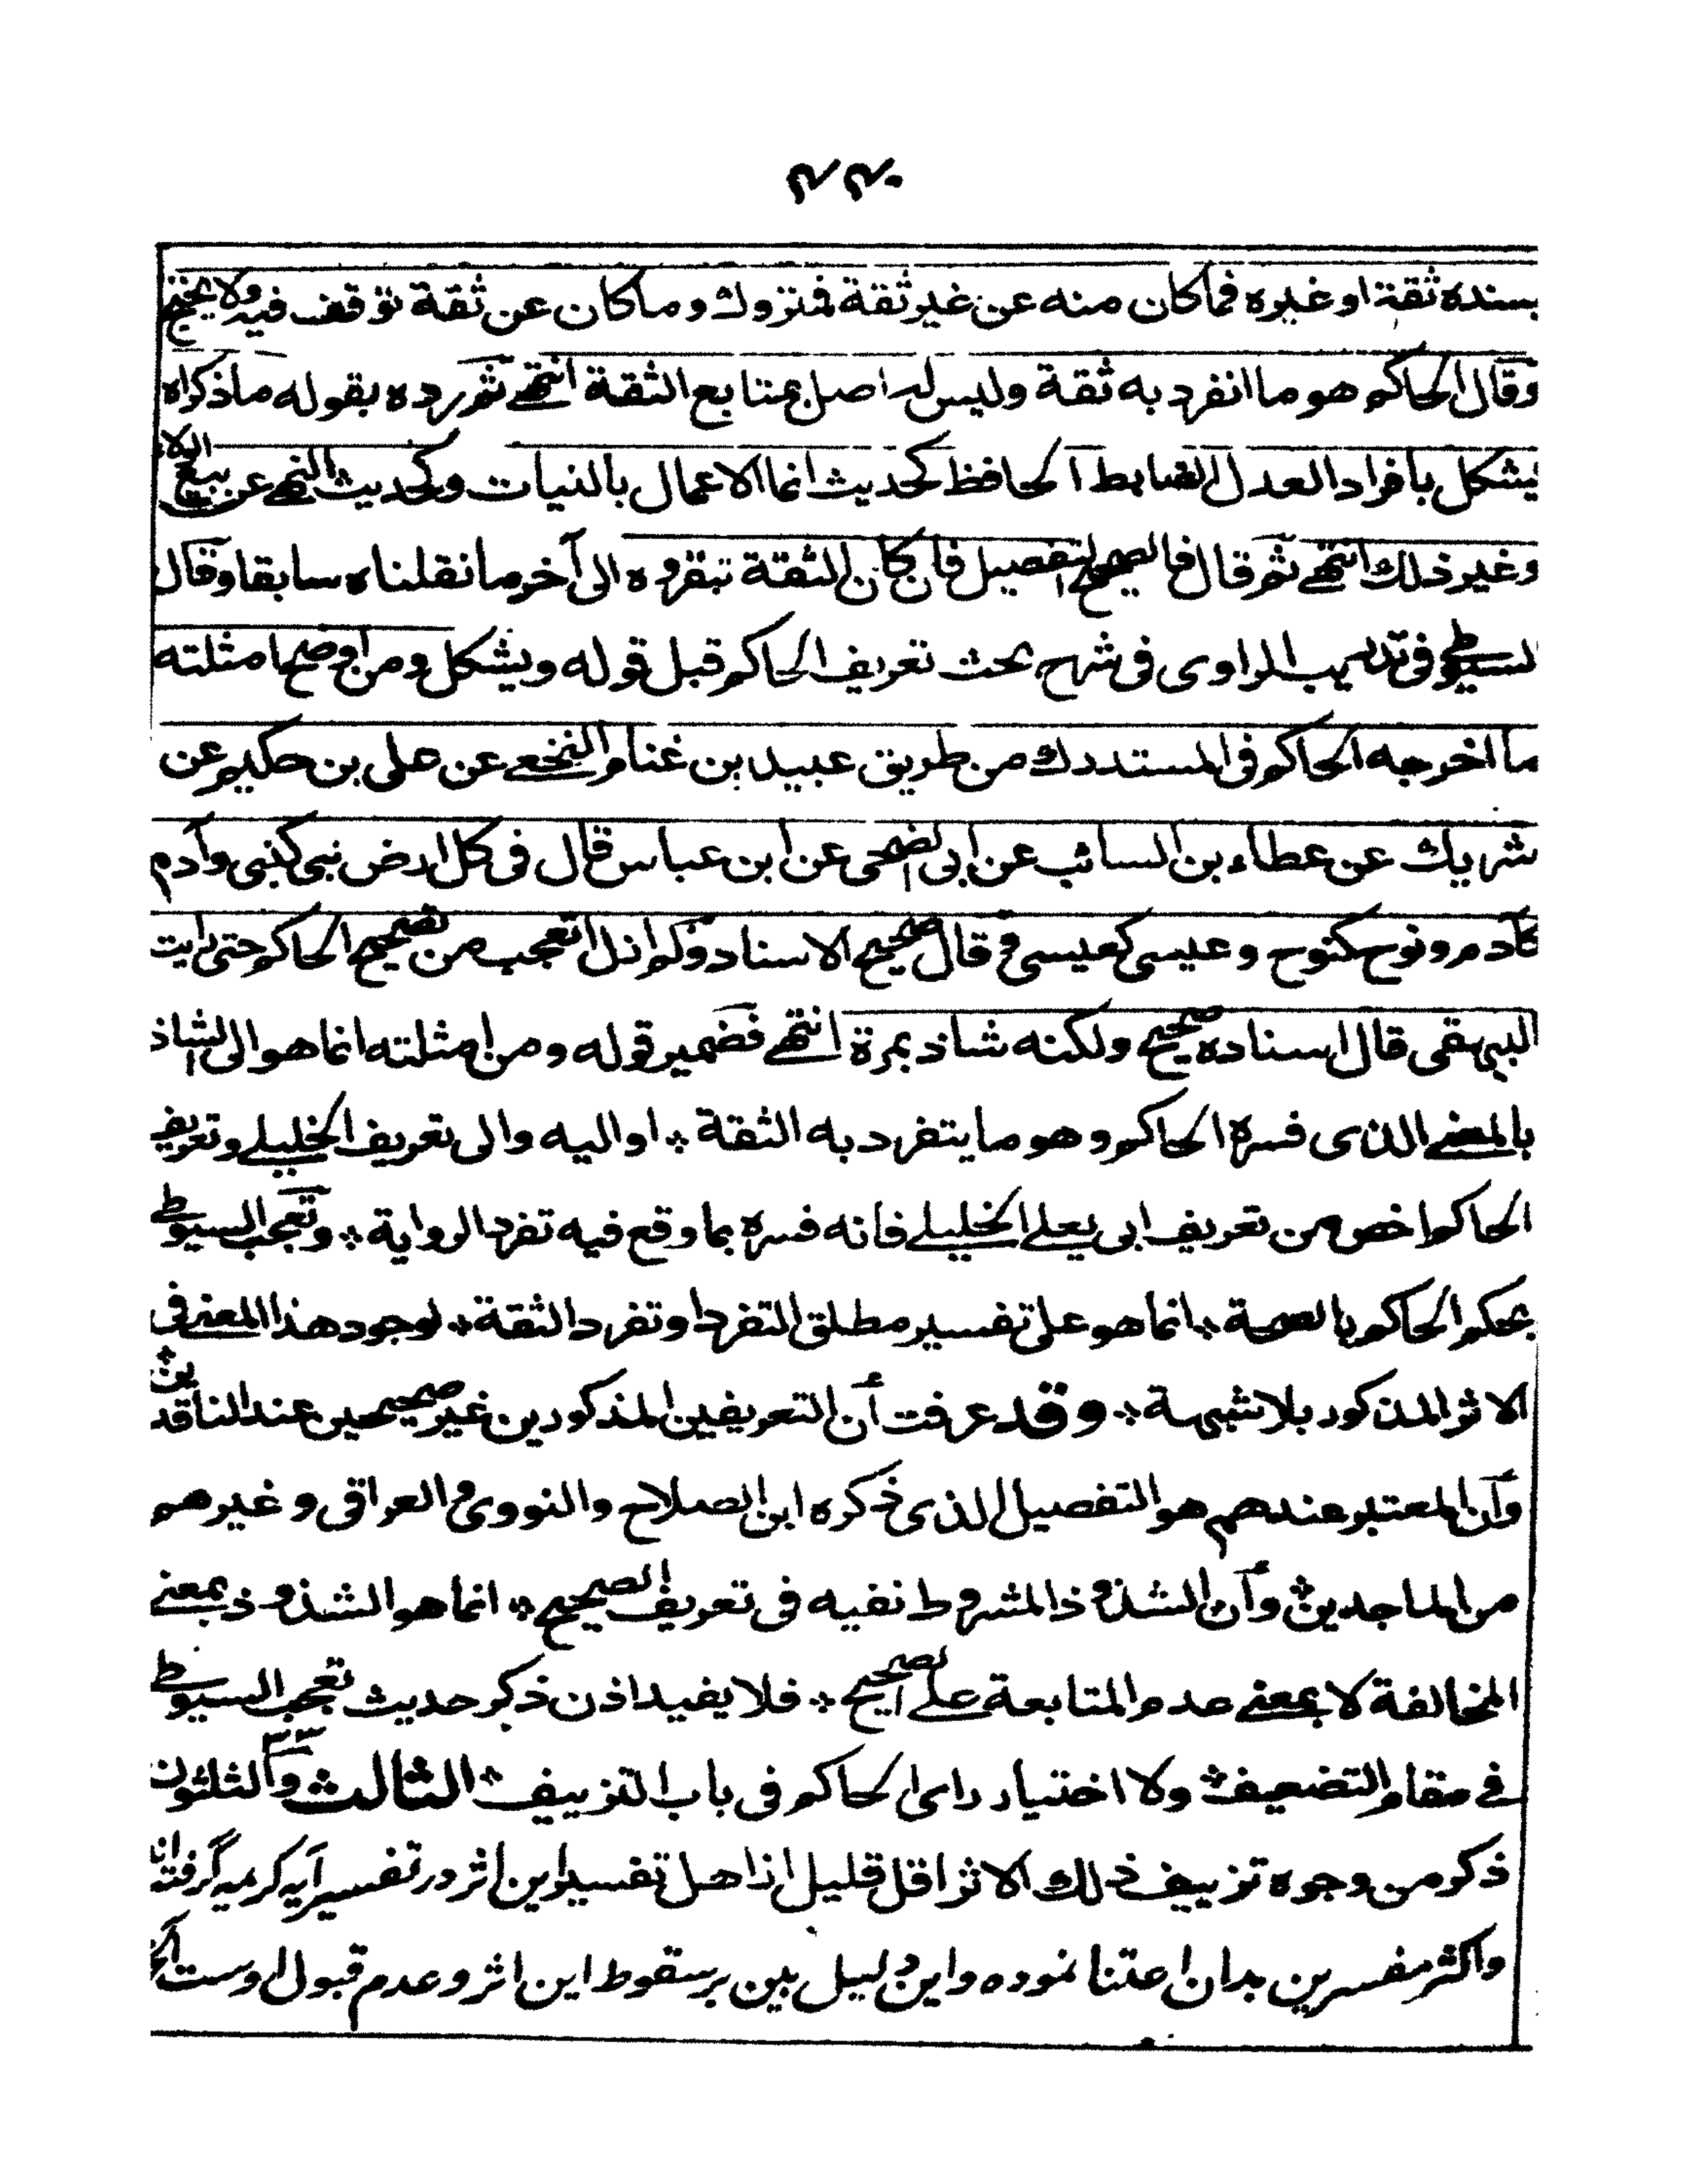 بسنده ثقة او غيره فما كان منه عن غير ثقة فمتروك وما كان عن ثقة توقف فيه ولا يحتج
وقال الحاكم هو ما انفرد به ثقة وليس له اصل بمتابع الثقة انتهى ثم رده بقوله ما ذكراه
يشكل بافراد العدل الضابط الحافظ كحديث انما الاعمال بالنيات وكحديث النهى عن بيع الولاء
وغير ذلك انتهى ثم قال فالصحيح التفصيل فان كان الثقة بتفرده الى آخر ما نقلناه سابقا وقال
السيوطى فى تدريب الراوى فى شرح بحث تعريف الحاكم قبل قوله ويشكل ومن اوضح امثلته
ما اخرجه الحاكم فى المستدرك من طريق عبيد بن غنام النخعى عن على بن حكيم عن
شريك عن عطاء بن السائب عن ابى الضحى عن ابن عباس قال فى كل ارض نبى كنبى وآدم
كآدم ونوح كنوح وعيسى كعيسى وقال صحيح الاسناد ولم ازل اتعجب من تصحيح الحاكم حتى رايت
البيهقى قال اسناده صحيح ولكنه شاذ بمرة انتهى فضمير قوله ومن امثلته انما هو الى الشاذ
بالمعنى الذى فسره الحاكم وهو ما يتفرد به الثقة ۞ او اليه والى تعريف الخليلى وتعريف
الحاكم اخص من تعريف ابى يعلى الخليلى فانه فسره بما وقع فيه تفرد الرواية ۞ وتعجب السيوطى
بحكم الحاكم بالصحة ۞ انما هو على تفسير مطلق التفرد او تفرد الثقة ۞ لوجود هذا المعنى فى
الاثر المذكور بلا شبهة ۞ وقد عرفت أن التعريفين المذكورين غير صحيحين عند الناقدين
وأن المعتبر عندهم هو التفصيل الذى ذكره ابن الصلاح والنووى والعراقى وغيرهم
من الماجدين ۞ وأن الشذوذ المشروط نفيه فى تعريف الصحيح ۞ انما هو الشذوذ بمعنى
المخالفة لا بمعنى عدم المتابعة على الصحيح ۞ فلا يفيد اذن ذكر حديث تعجب السيوطى
فى مقام التضعيف ۞ ولا اختيار راى الحاكم فى باب التزييف ۞ الثالث والثلثون
ذكر من وجوه تزييف ذلك الاثر اقل قليل اذا هل تفسير اين اثر در تفسير آيه كريمه گرفته اند
واكثر مفسرين بدان اعتنا نموده واين دليل بين بر سقوط اين اثر وعدم قبول اوست الخ